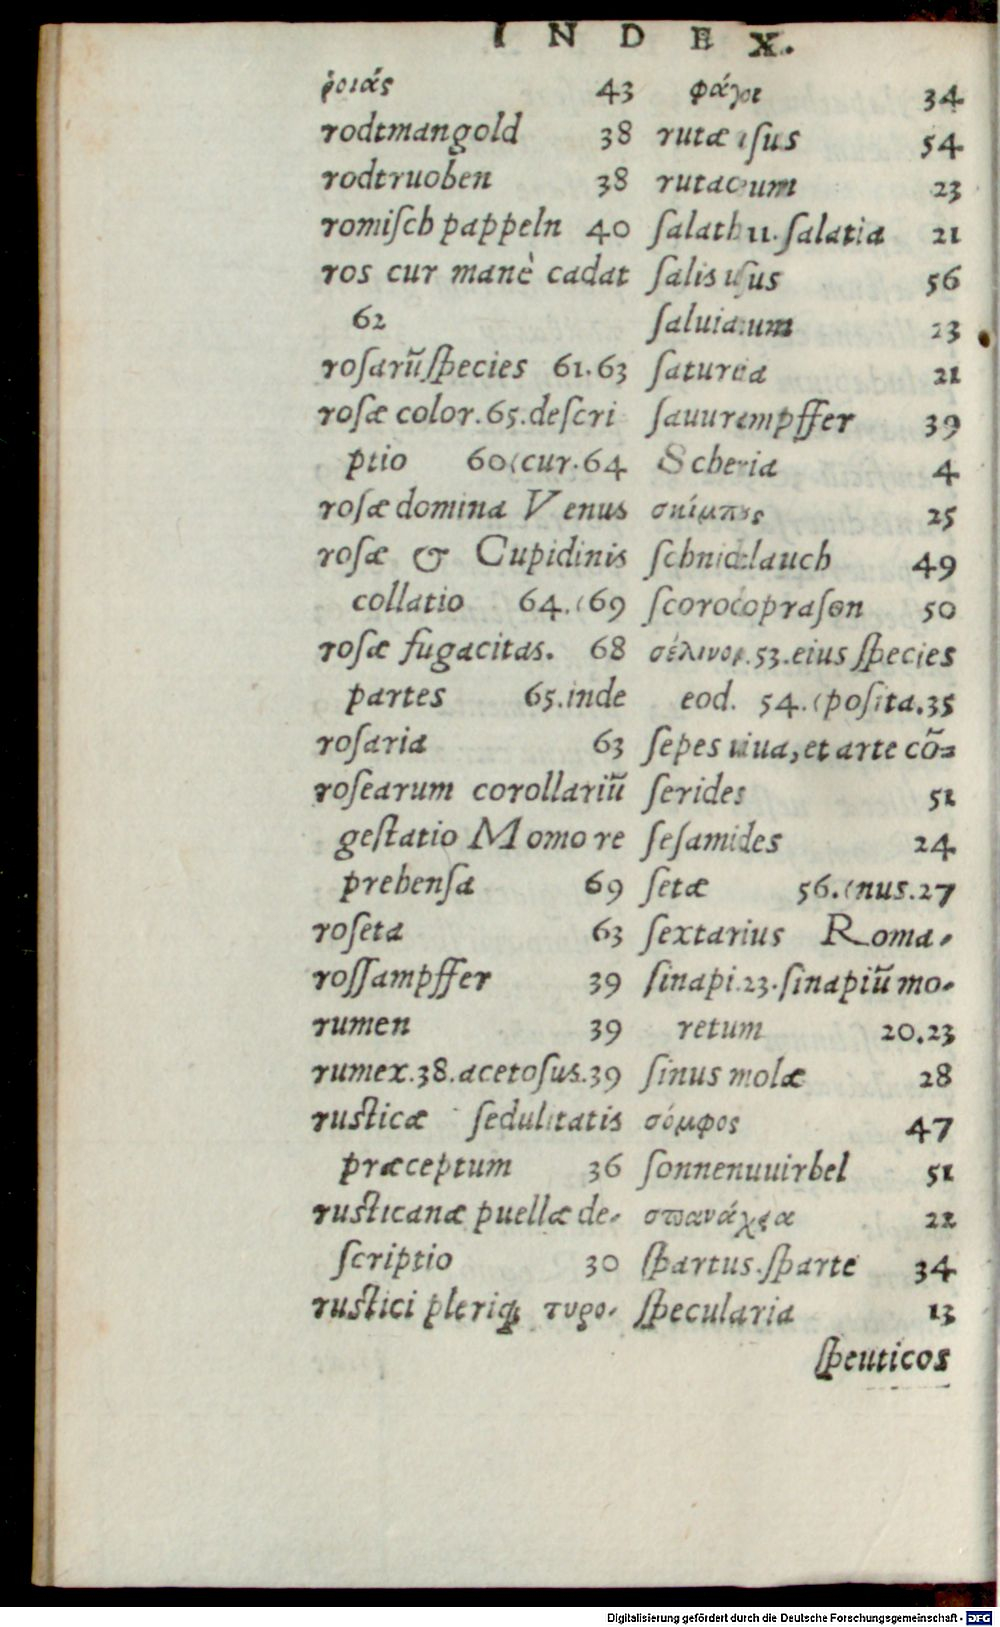 INDEX.
ῥοιάς 43
rodtmangold 38
rodtruoben 38
romiſch pappeln 40
ros cur manè cadat
62
roſarũ ſpecies 61.63
roſæ color.65.deſcri
ptio 60(cur.64
roſæ domina Venus
roſæ & Cupidinis
collatio 64.(69
roſæ fugacitas. 68
partes 65.inde
roſaria 63
roſearum corollariũ
geſtatio Momo re
prehenſa 69
roſeta 63
roſſampffer 39
rumen 39
rumex.38.acetoſus.39
ruſticæ ſedulitatis
præceptum 36
ruſticanæ puellæ de-
ſcriptio 30
ruſtici pleriq; τυρο-
φάγοι 34
rutæ uſus 54
rutaceum 23
ſalath 11.ſalatia 21
ſalis uſus 56
ſaluiatum 23
ſatureia 21
ſauurampffer 39
Scheria 4
σκίμπυς 25
ſchnidtlauch 49
ſcorodopraſon 50
σέλινον.53.eius ſpecies
eod. 54.(poſita.35
ſepes uiua, et arte cõ=
ſerides 51
ſeſamides 24
ſetæ 56.(nus.27
ſextarius Roma-
ſinapi.23.ſinapiũ mo-
retum 20.23
ſinus molæ 28
σόμφος 47
ſonnenuuirbel 51
22
ſpartus.ſparte 34
ſpecularia 13
ſpeuticos
Digitalisierung gefördert durch die Deutsche Forschungsgemeinschaft - DFG